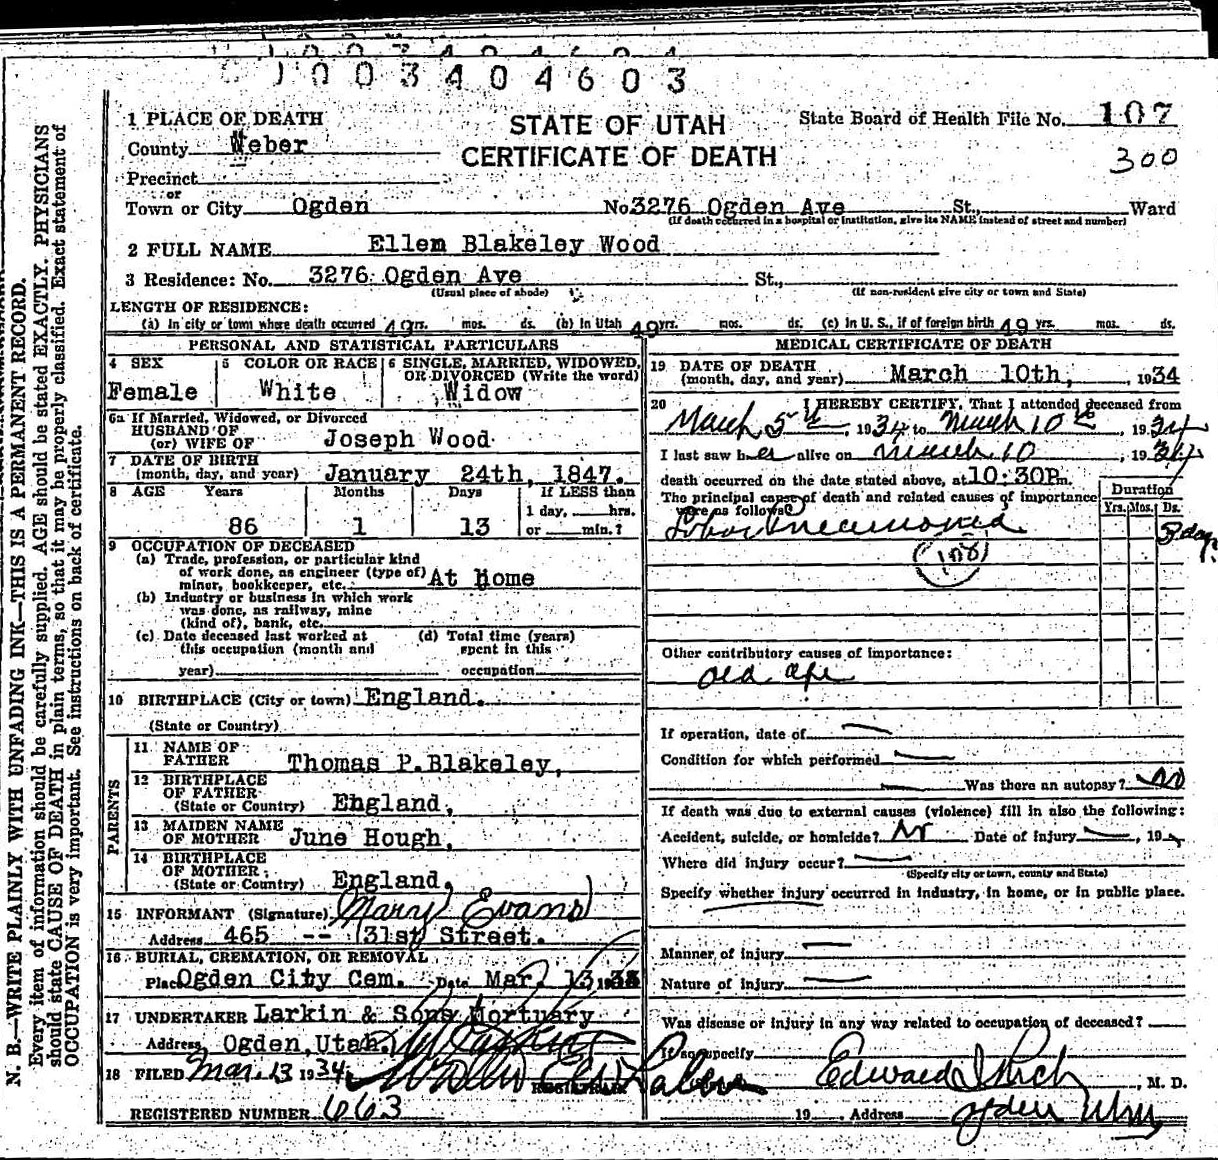 1003404603
1 PLACE OF DEATH
STATE OF UTAH
State Board of Health File No. 107
County Weber
CERTIFICATE OF DEATH
300
Precinct
or
Town or City Ogden No 3276 Ogden Ave St., Ward
(If death occurred in a hospital or institution, give its NAME instead of street and number)
2 FULL NAME Ellem Blakeley Wood
3 Residence: No. 3276 Ogden Ave St.,
(Usual place of abode) (If non-resident give city or town and State)
LENGTH OF RESIDENCE:
(a) In city or town where death occurred 49 yrs. mos. ds. (b) In Utah 49 yrs. mos. ds. (c) In U. S., if of foreign birth 49 yrs. mos. ds.
PERSONAL AND STATISTICAL PARTICULARS
4 SEX 5 COLOR OR RACE 6 SINGLE, MARRIED, WIDOWED, OR DIVORCED (Write the word)
Female White Widow
6a If Married, Widowed, or Divorced
HUSBAND OF
(or) WIFE OF Joseph Wood
7 DATE OF BIRTH
(month, day, and year) January 24th, 1847.
8 AGE Years Months Days If LESS than
1 day, hrs.
86 1 13 or min.?
9 OCCUPATION OF DECEASED
(a) Trade, profession, or particular kind
of work done, as engineer (type of)
miner, bookkeeper, etc. At Home
(b) Industry or business in which work
was done, as railway, mine
(kind of), bank, etc.
(c) Date deceased last worked at (d) Total time (years)
this occupation (month and spent in this
year) occupation
10 BIRTHPLACE (City or town) England.
(State or Country)
PARENTS
11 NAME OF
FATHER Thomas P. Blakeley,
12 BIRTHPLACE
OF FATHER
(State or Country) England,
13 MAIDEN NAME
OF MOTHER June Hough,
14 BIRTHPLACE
OF MOTHER
(State or Country) England,
15 INFORMANT (Signature) Mary Evans
Address 465 -- 31st Street.
16 BURIAL, CREMATION, OR REMOVAL
Place Ogden City Cem. Date Mar. 13 19
17 UNDERTAKER Larkin & Sons Mortuary
Address Ogden, Utah.
18 FILED Mar. 13 1934
REGISTRAR
REGISTERED NUMBER 663
MEDICAL CERTIFICATE OF DEATH
19 DATE OF DEATH
(month, day, and year) March 10th, 1934
20 I HEREBY CERTIFY, That I attended deceased from
March 5th, 1934 to March 10th, 1934
I last saw her alive on March 10, 1934
death occurred on the date stated above, at 10:30P m.
The principal cause of death and related causes of importance
were as follows:
Duration
Yrs. Mos. Ds.
Lobar Pneumonia
(108)
Other contributory causes of importance:
old age
If operation, date of —
Condition for which performed —
— Was there an autopsy? No
If death was due to external causes (violence) fill in also the following:
Accident, suicide, or homicide? No Date of injury —, 19
Where did injury occur? —
(Specify city or town, county and State)
Specify whether injury occurred in industry, in home, or in public place.
Manner of injury —
Nature of injury —
Was disease or injury in any way related to occupation of deceased?
If so, specify
Edward I Rich, M. D.
19 Address Ogden Utah
N. B.—WRITE PLAINLY WITH UNFADING INK—THIS IS A PERMANENT RECORD.
Every item of information should be carefully supplied. AGE should be stated EXACTLY. PHYSICIANS
should state CAUSE OF DEATH in plain terms, so that it may be properly classified. Exact statement of
OCCUPATION is very important. See instructions on back of certificate.